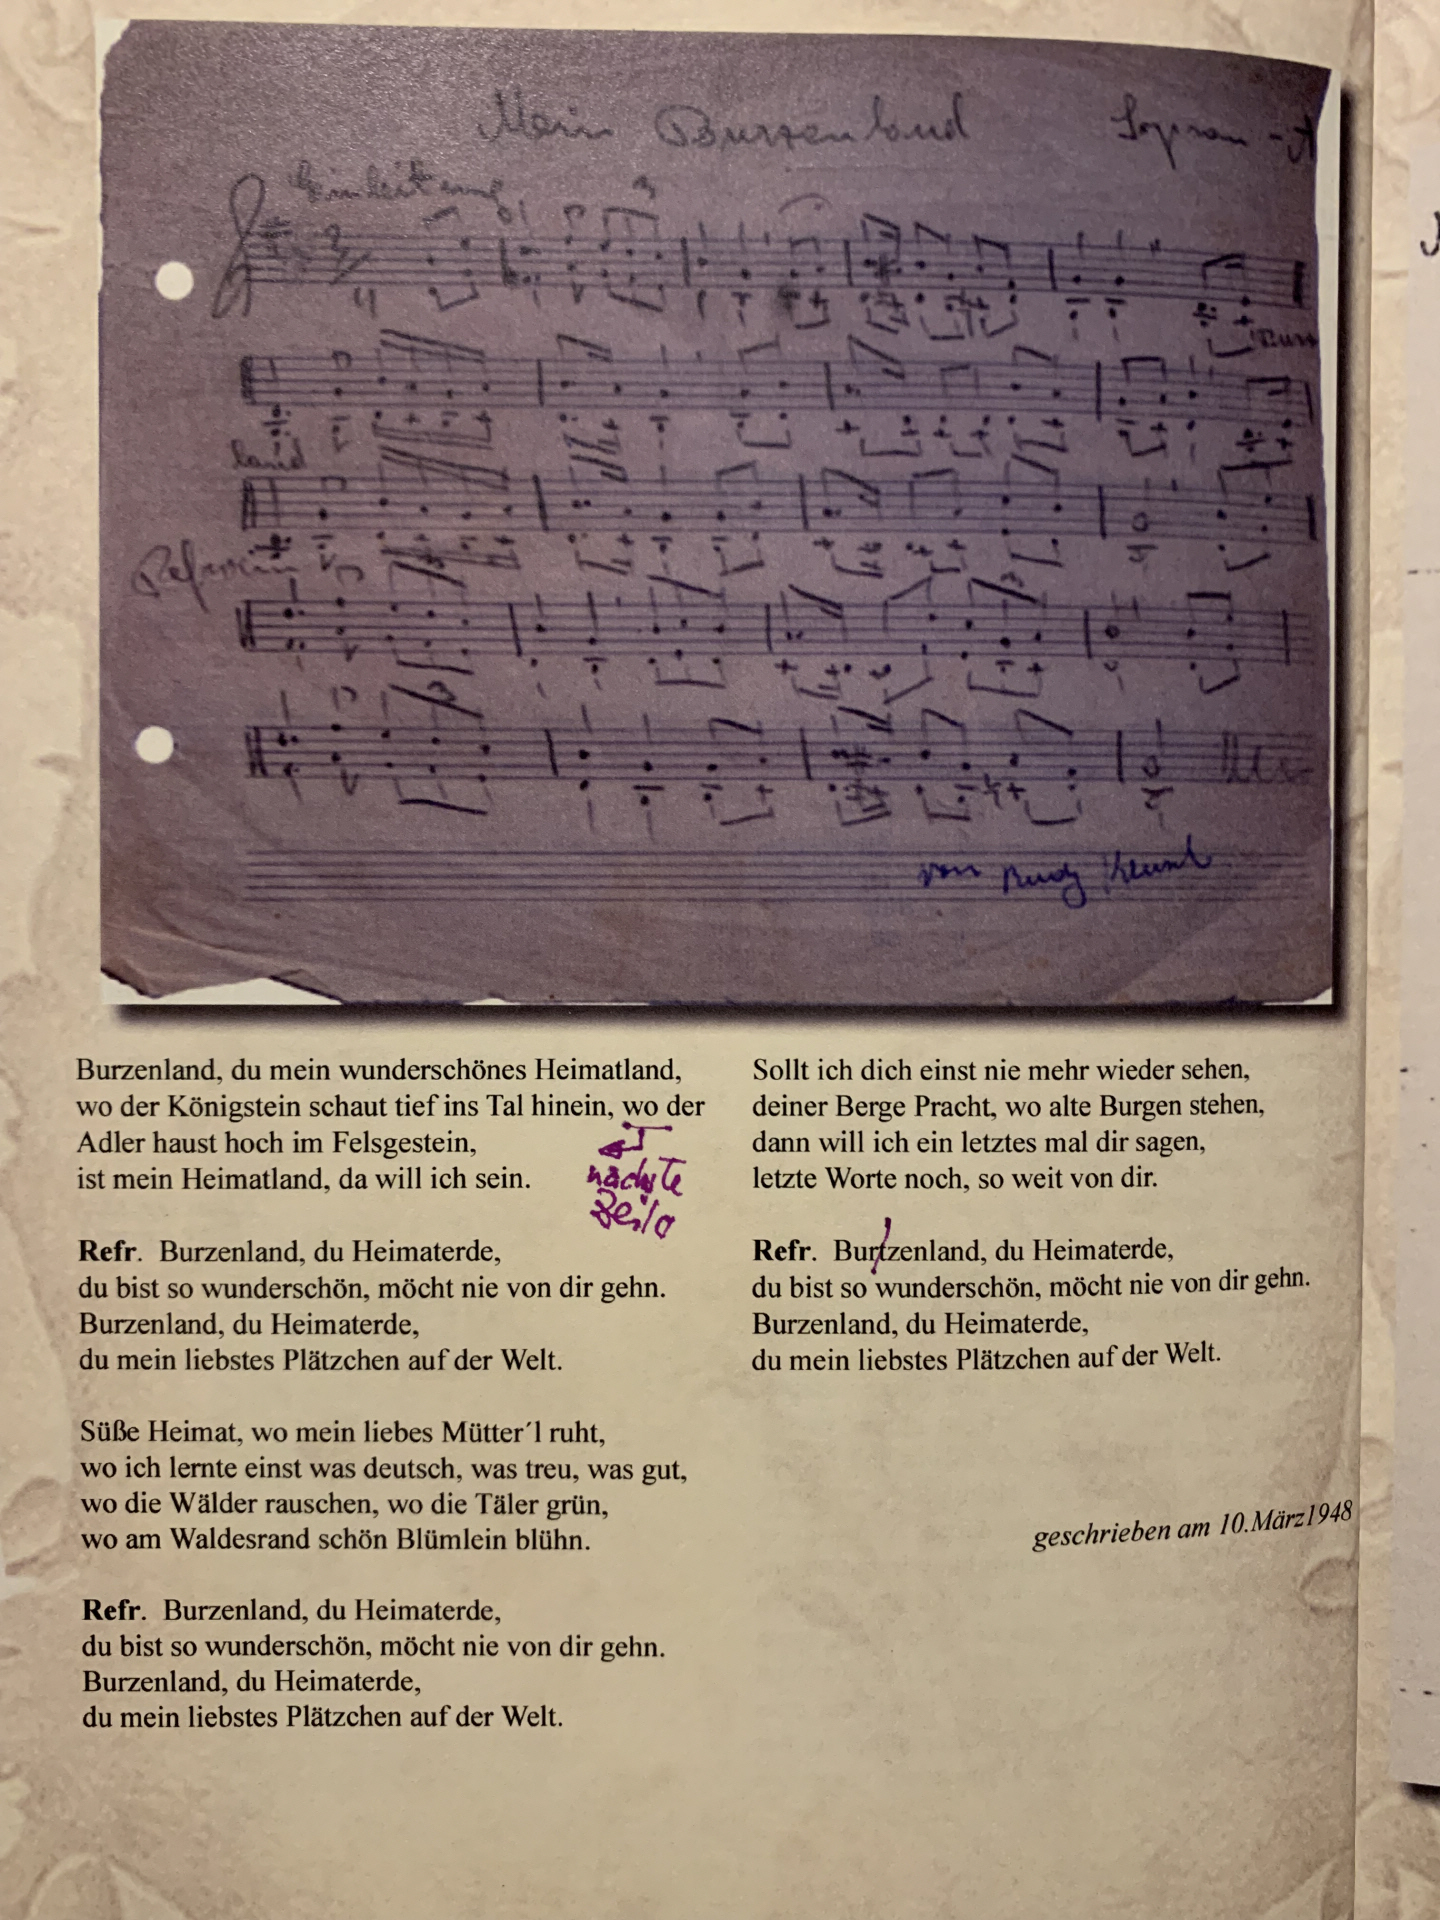 Mein Burzenland
Sopran - A
Einleitung
Burz
land
Refrain
von Rudy
Burzenland, du mein wunderschönes Heimatland,
wo der Königstein schaut tief ins Tal hinein, wo der
Adler haust hoch im Felsgestein,
ist mein Heimatland, da will ich sein.
nächste
Zeile
Refr. Burzenland, du Heimaterde,
du bist so wunderschön, möcht nie von dir gehn.
Burzenland, du Heimaterde,
du mein liebstes Plätzchen auf der Welt.
Süße Heimat, wo mein liebes Mütter´l ruht,
wo ich lernte einst was deutsch, was treu, was gut,
wo die Wälder rauschen, wo die Täler grün,
wo am Waldesrand schön Blümlein blühn.
Refr. Burzenland, du Heimaterde,
du bist so wunderschön, möcht nie von dir gehn.
Burzenland, du Heimaterde,
du mein liebstes Plätzchen auf der Welt.
Sollt ich dich einst nie mehr wieder sehen,
deiner Berge Pracht, wo alte Burgen stehen,
dann will ich ein letztes mal dir sagen,
letzte Worte noch, so weit von dir.
Refr. Burtzenland, du Heimaterde,
du bist so wunderschön, möcht nie von dir gehn.
Burzenland, du Heimaterde,
du mein liebstes Plätzchen auf der Welt.
geschrieben am 10.März1948